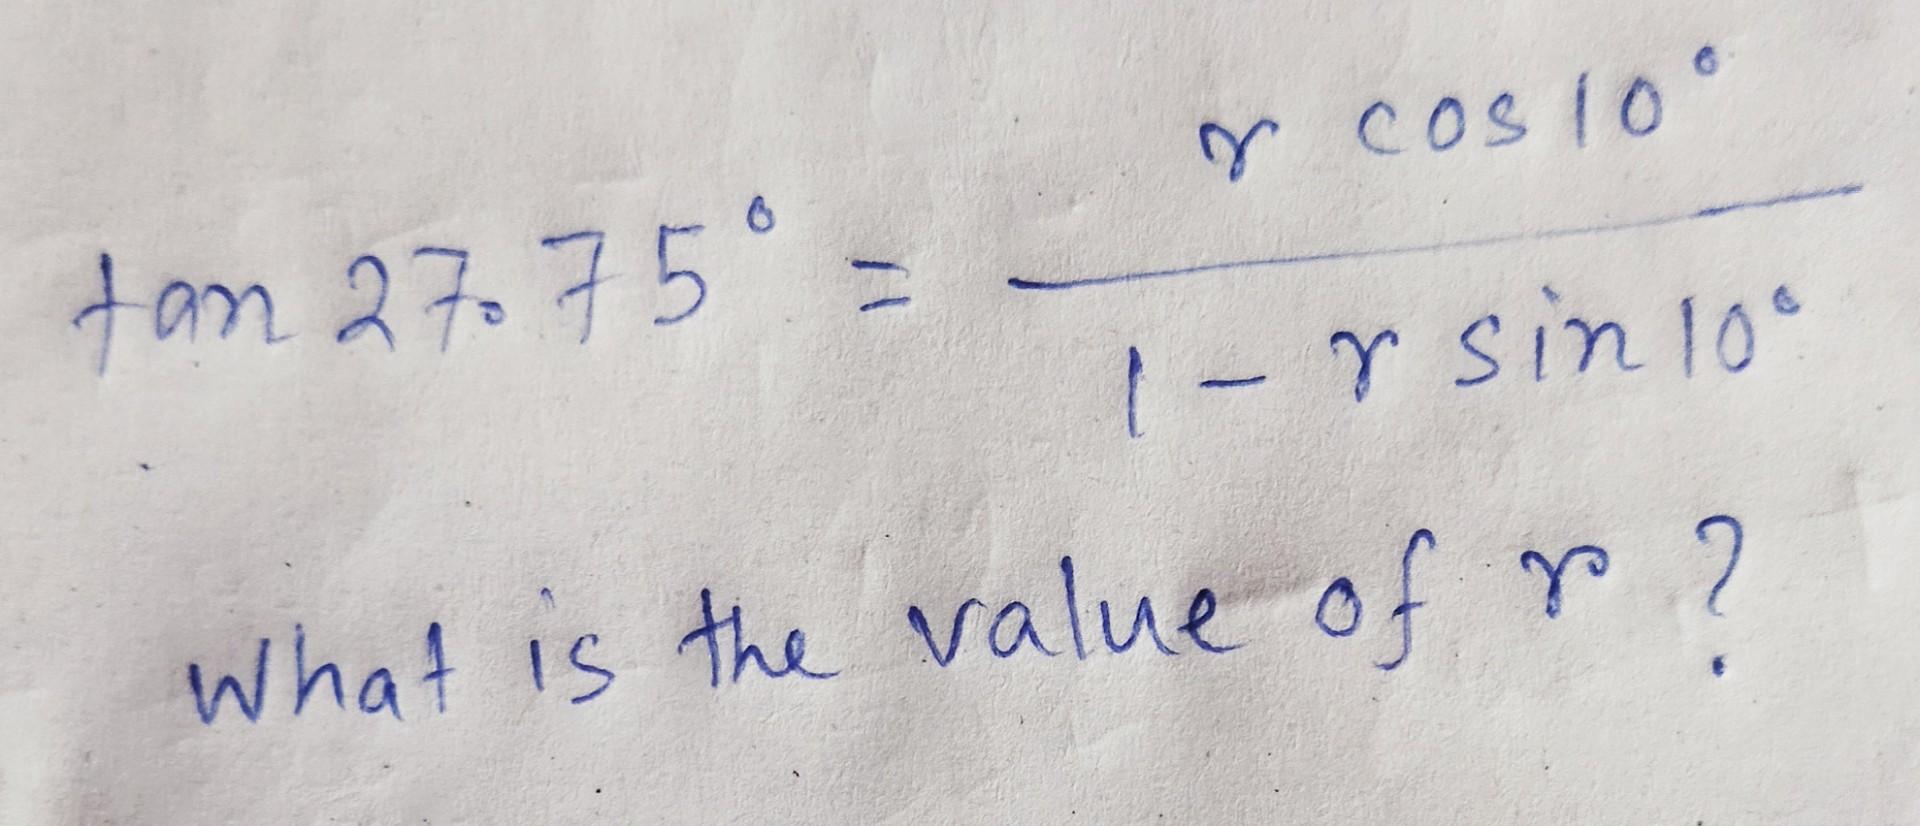 tan 27.75° = r cos10° / 1 - r sin10°
What is the value of r ?